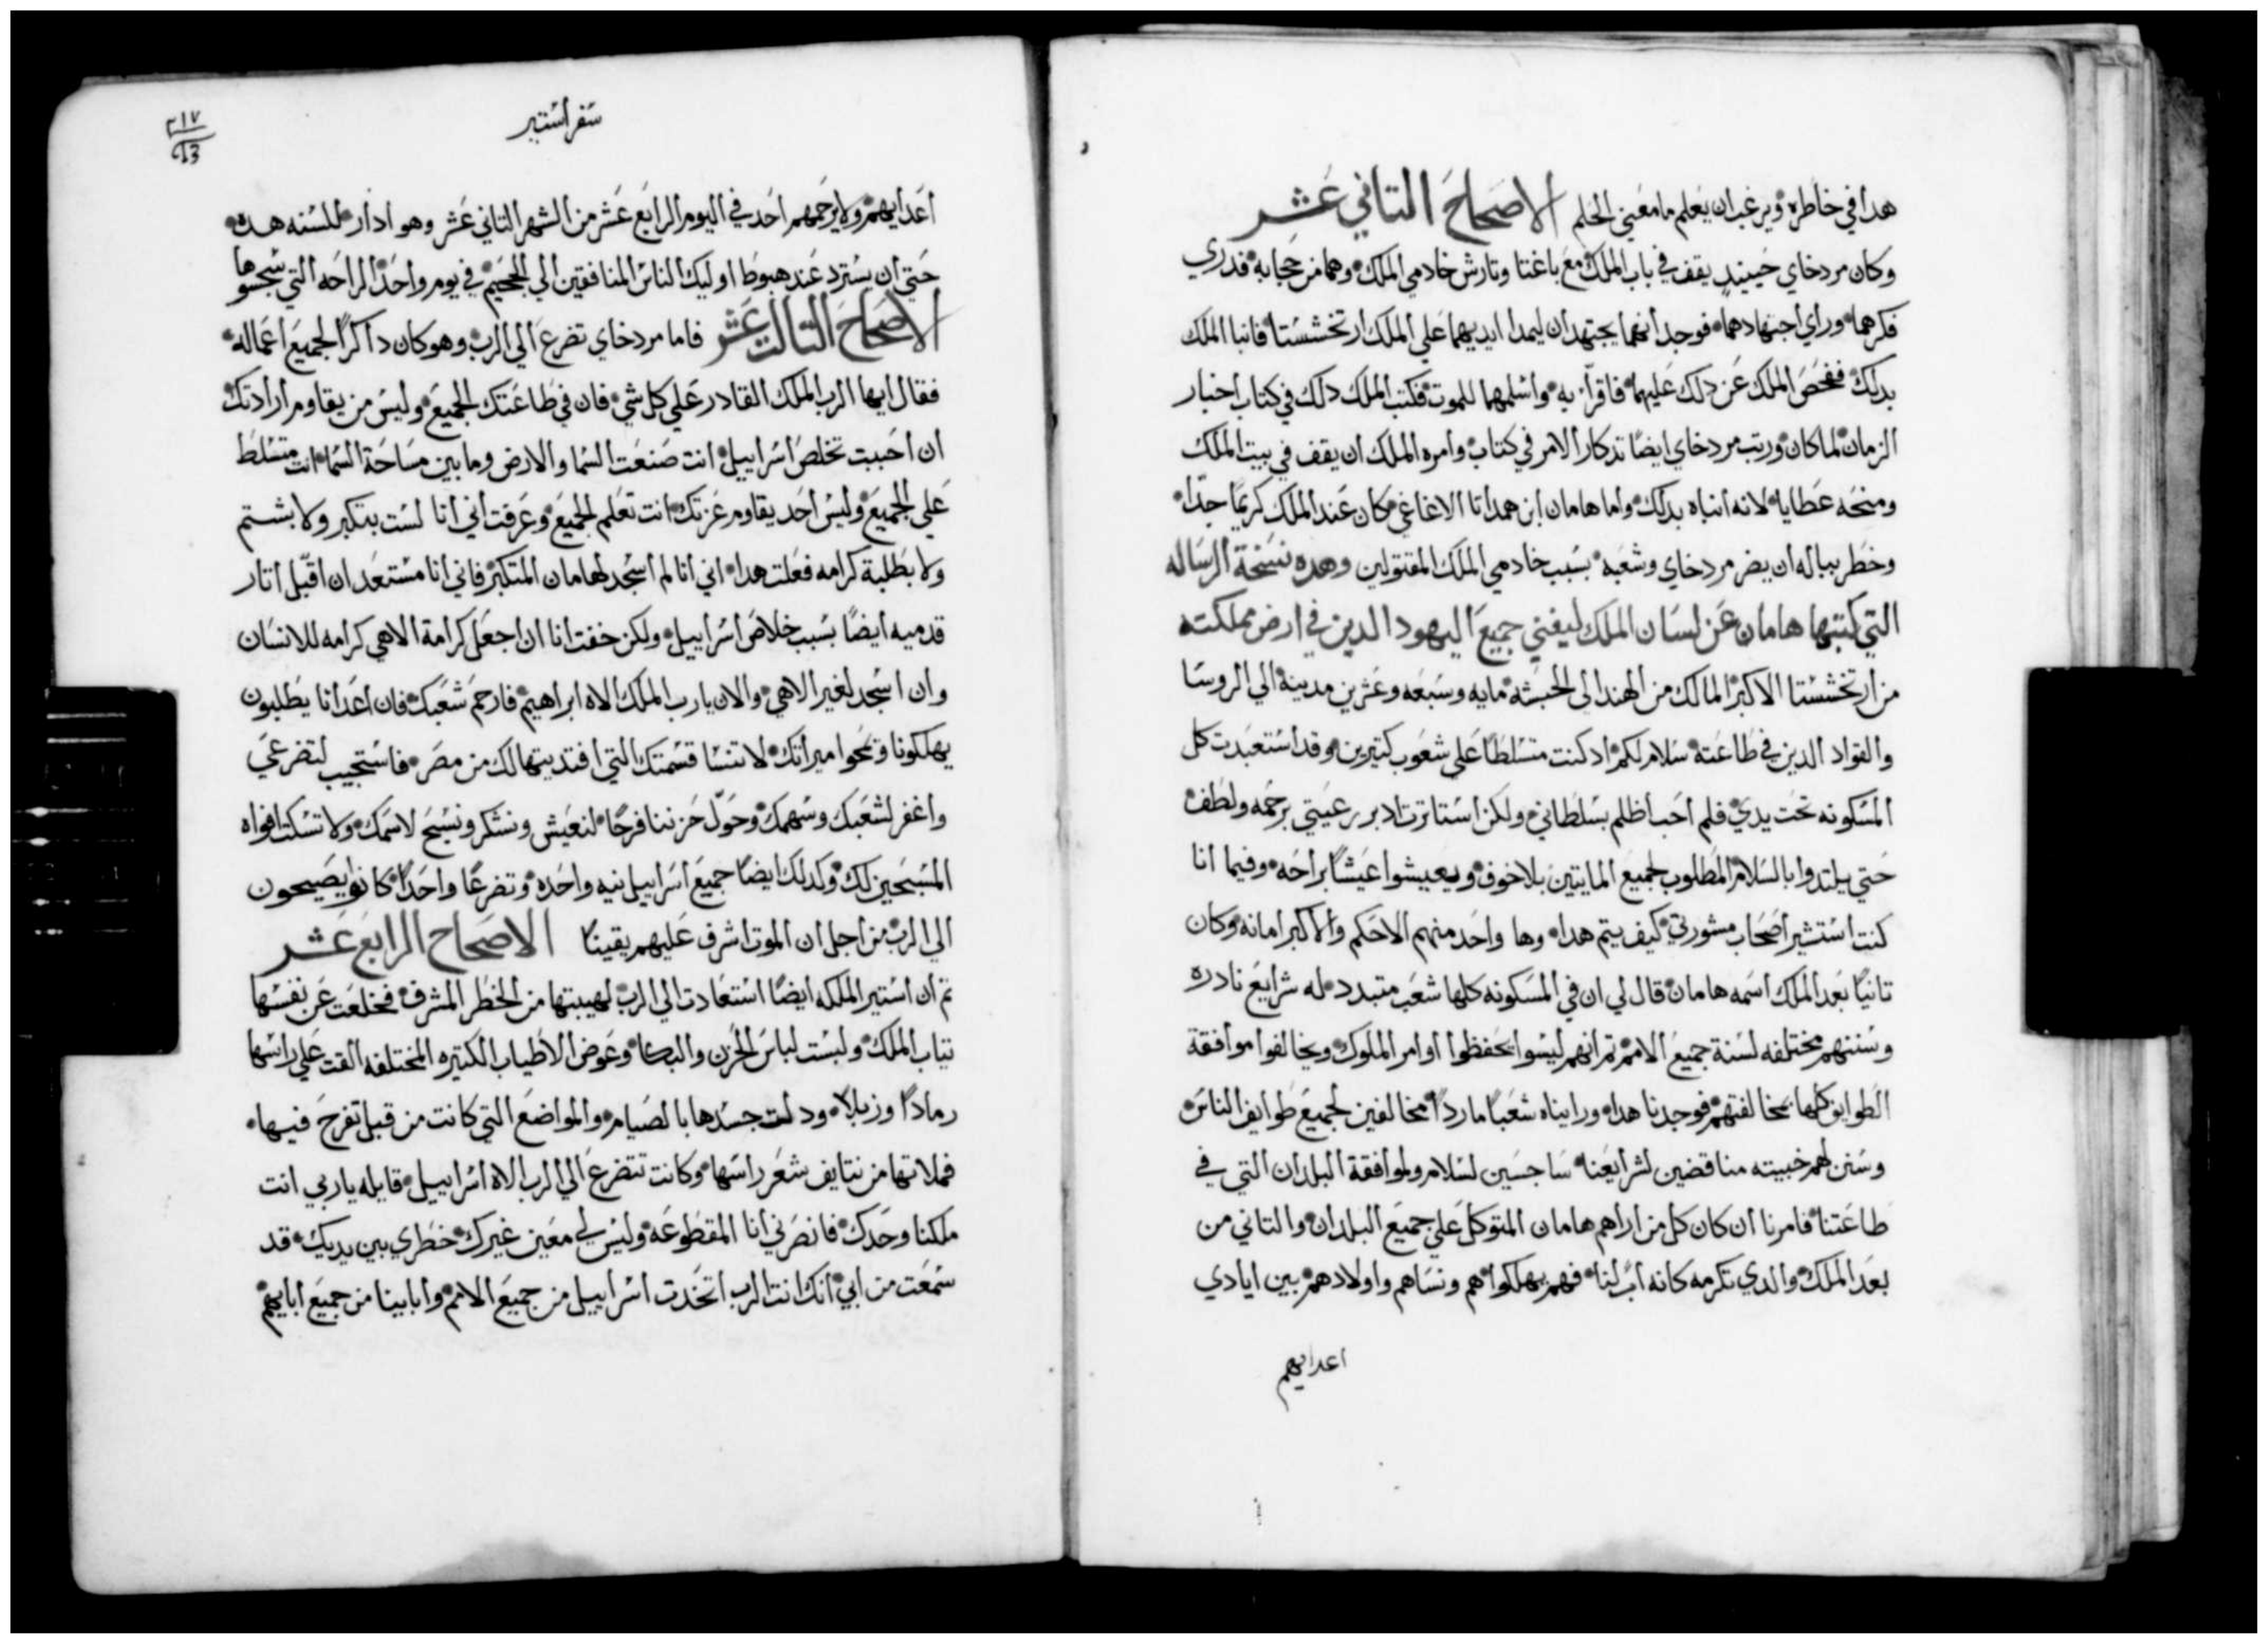 هدا في خاطره ويرغب ان يعلم ما معني الحلم الاصحاح التاني عشر
وكان مردخاي حينيد يقف في باب الملك مع باغتا وتارش خادمي الملك وهما من حجابه فدري
فكرهما وراي اجتهادهما فوجد انهما يجتهدان ليمدا ايديهما علي الملك ارتخششتا فانبا الملك
بدلك ففحص الملك عن دلك عليهما فاقرا به واسلمهما للموت فكتب الملك دلك في كتاب اخبار
الزمان لما كان ورتب مردخاي ايضا تدكار الامر في كتاب وامره الملك ان يقف في بيت الملك
ومنحه عطايا لانه انباه بدلك واما هامان ابن همداتا الاغاغي مكان عند الملك كريما جدا
وخطر بباله ان يضر مردخاي وشعبه بسبب خادمي الملك المقتولين وهده نسخة الرساله
التي كتبها هامان عن لسان الملك ليفني جميع اليهود الدين في ارض مملكته
من ارتخششتا الاكبر المالك من الهند الي الحبشه مايه وسبعه وعشرين مدينة الي الروسا
والقواد الدين في طاعته سلام لكم اد كنت متسلطا علي شعوب كتيرين وقد استعبدت كل
المسكونه تحت يدي فلم احب اظلم بسلطاني ولكن استاترت ادبر رعيتي برحمه ولطف
حتي يلتدوا بالسلام المطلوب لجميع المايتين بلا خوف ويعيشوا عيشا براحه وفيما انا
كنت استشير اصحاب مشورتي كيف يتم هدا وها واحد منهم الاحكم والاكبر امانه وكان
تانيا بعد الملك اسمه هامان قال لي ان في المسكونه كلها شعب متبدد له شرايع نادره
وسننهم مختلفه لسنة جميع الامم تم انهم ليسوا يحفظوا اوامر الملوك ويخالفوا موافقة
الطوايف كلها بمخالفتهم فوجدنا هدا ورايناه شعبا ماردا مخالفين لجميع طوايف الناس
وسنن لهم خبيته مناقضين لشرايعنا ساجسين لسلام ولموافقة البلدان التي في
طاعتنا فامرنا ان كان كل من اراهم هامان المتوكل علي جميع البلدان والتاني من
بعد الملك والدي نكرمه كانه اب لنا فهم يهلكوا هم ونساهم واولادهم بين ايادي
اعدايهم
سفر استير
٢١٧
213
اعدايهم ولا يرحمهم احد في اليوم الرابع عشر من الشهر التاني عشر وهو ادار للسنه هده
حتي ان يسترد عند هبوط اوليك الناس المنافقين الي الجحيم في يوم واحد الراحه التي سجسوها
الاصحاح التالت عشر فاما مردخاي تضرع الي الرب وهو كان داكرا لجميع اعماله
فقال ايها الرب الملك القادر علي كل شي فان في طاعتك الجميع وليس من يقاوم ارادتك
ان احببت تخلص اسراييل انت صنعت السما والارض وما بين مساحة السما انت متسلط
علي الجميع وليس احد يقاوم عزتك انت تعلم الجميع وعرفت اني انا لست بتكبر ولا بشتم
ولا بطلبة كرامه فعلت هدا اني انا لم اسجد لهامان المتكبر فاني انا مستعد ان اقبل اتار
قدميه ايضا بسبب خلاص اسراييل ولكن خفت انا ان اجعل كرامة الاهي كرامه للانسان
وان اسجد لغير الاهي والان يارب الملك الاه ابراهيم فارحم شعبك فان اعدانا يطلبون
يهلكونا ويمحوا ميراتك لا تنسا قسمتك التي افتديتها لك من مصر فاستجيب لتضرعي
واغفر لشعبك وسهمك وحول حزننا فرحا لنعيش ونشكر ونسبح لاسمك ولا تسكت افواه
المسبحين لك وكدلك ايضا جميع اسراييل بنيه واحده وتضرعا واحدا كانوا يصيحون
الي الرب من اجل ان الموت اشرف عليهم يقينا الاصحاح الرابع عشر
تم ان استير الملكه ايضا استعادت الي الرب لهيبتها من الخطر المشرف فخلعت عن نفسها
تياب الملك ولبست لباس الحزن والبكا وعوض الاطياب الكتيره المختلفه القت علي راسها
رمادا وزبلا ودلت جسدها بالصيام والمواضع التي كانت من قبل تفرح فيها
فملاتها من نتايف شعر راسها وكانت تتضرع الي الرب الاه اسراييل قايله ياربي انت
ملكنا وحدك فانصرني انا المقطوعه وليس لي معين غيرك خطري بين يديك قد
سمعت من ابي انك انت الرب اتخدت اسراييل من جميع الامم وابايينا من جميع ابايهم